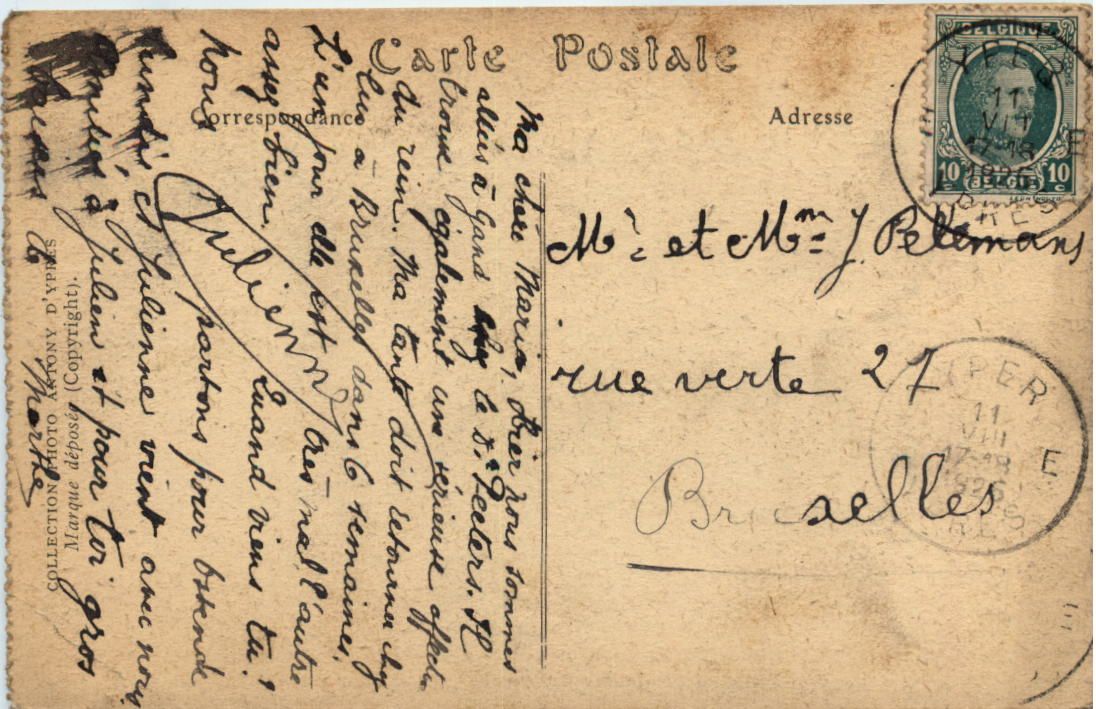 Carte Postale
Correspondance
Adresse
BELGIQUE
10 c 10 c
BELGIE
YPER
11
VIII
17-18
1926
YPRES
E
Ma chère Maria, hier nous sommes
allés à Gand chez le Dr Peeters. Il
trouve également une sérieuse affectn
du rein. Ma tante doit retourner chez
lui à Bruxelles dans 6 semaines.
L'un jour elle est très mal, l'autre
assez bien. Quand viens tu?
nous partons pour Ostende
lundi et Julienne vient avec nous
à Julien et pour toi gros
baisers de Marthe
Julienne
Mr et Mme J. Pelemans
rue verte 27
Bruxelles
YPER
11
VIII
17-18
1926
YPRES
E
COLLECTION PHOTO ANTONY D'YPRES
Marque déposée (Copyright).